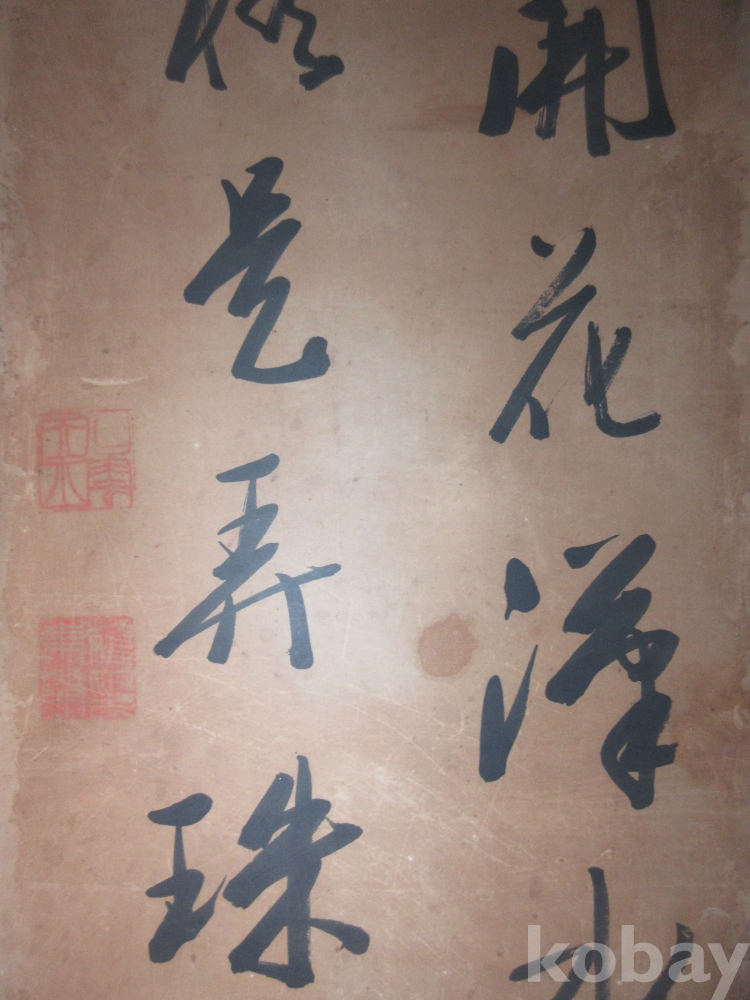 開花漢水
是弄珠
kobay